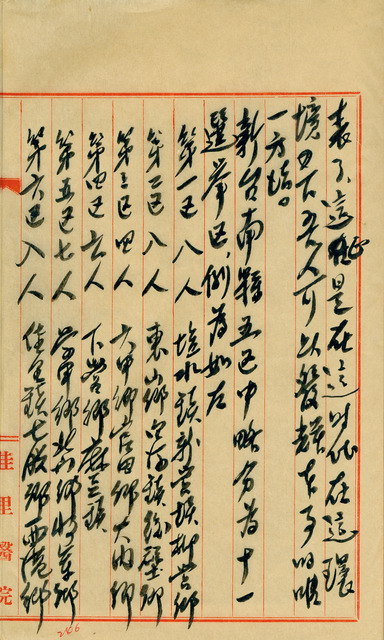 在這時代在這環
境之下吾人可以發揮本事的唯
一方法。
新台南縣五区中略分為十一
選挙区,例為如左
第一区 八人 塩水鎮新營鎮柳營鄉
第二区 八人 東山鄉白河鎮後壁鄉
第三区 四人 六甲鄉官田鄉大內鄉
第四区 六人 下營鄉麻豆鎮
第五区 七人 学甲鄉北門鄉將軍鄉
第六区 八人 佳里鎮七股鄉西港鄉
佳里醫院
266